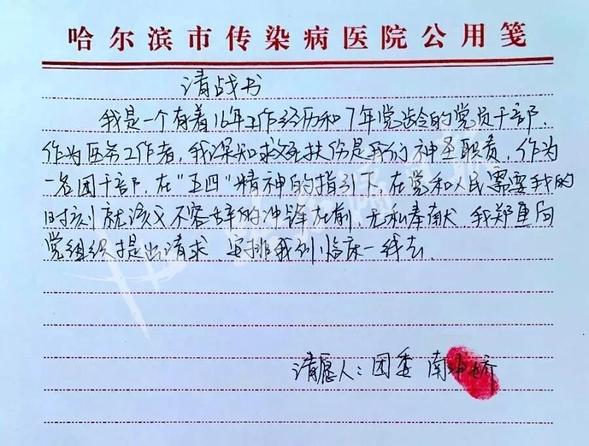 哈尔滨市传染病医院公用笺
请战书
我是一个有着16年工作经历和7年党龄的党员干部.
作为医务工作者,我深知救死扶伤是我们神圣职责,作为
一名团干部,在"五四"精神的指引下,在党和人民需要我的
时刻就该义不容辞的冲锋在前,无私奉献 我郑重向
党组织提出请求,安排我到临床一线去.
请愿人:团委 南 娇